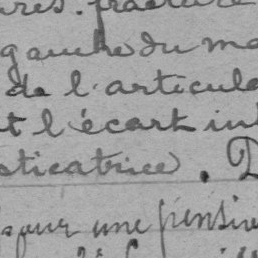 fracture
gauche du
de l'articula
t l'écart in
sticatrice. D
pour une pensi